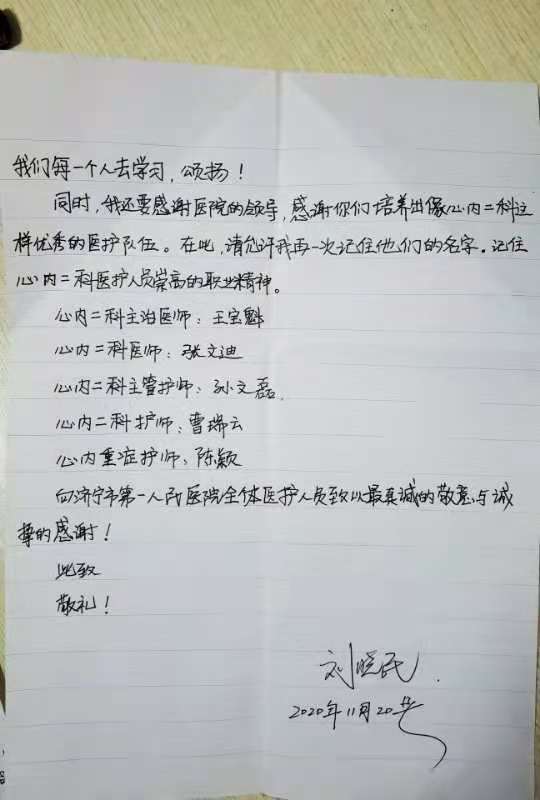 我们每一个人去学习，颂扬！
同时，我还要感谢医院的领导，感谢你们培养出像心内二科这
样优秀的医护队伍。在此，请允许我再一次记住他们的名字。记住
心内二科医护人员崇高的职业精神。
心内二科主治医师：王宝魁
心内二科医师：张文迪
心内二科主管护师：孙文磊.
心内二科护师：曹瑞云
心内重症护师：陈颖
向济宁市第一人民医院全体医护人员致以最真诚的敬意与诚
挚的感谢！
此致
敬礼！
刘晓民.
2020年11月20号